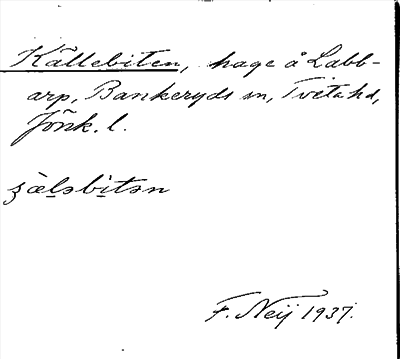 Källebiten, hage å Labb-
arp, Bankeryds sn, Tveta hd,
Jönk. l.
F. Neij 1937.